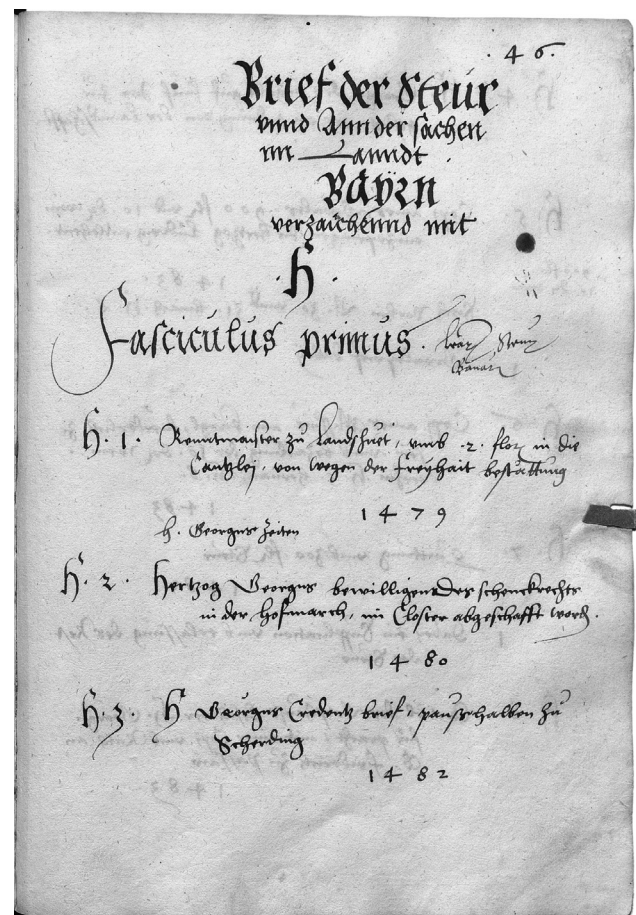 . 46.
Brief der Steur
vnnd Annder sachen
im Lanndt
Bayrn
verzaichennd mit
. H .
Fasciculus primus.
H. 1. Renntmaister zu Landshuet, vmb .2. flor in die
Cantzlej, von wegen der freyhait bestättung
1479
h. Georgns Zeiten
H. 2. Hertzog Georgns bewilligen des schenckrechts
in der Hofmarch, im Closter abgeschafft word.
1480
H. 3. H Georgns Credentz brief, paushalben zu
Scherding
1482